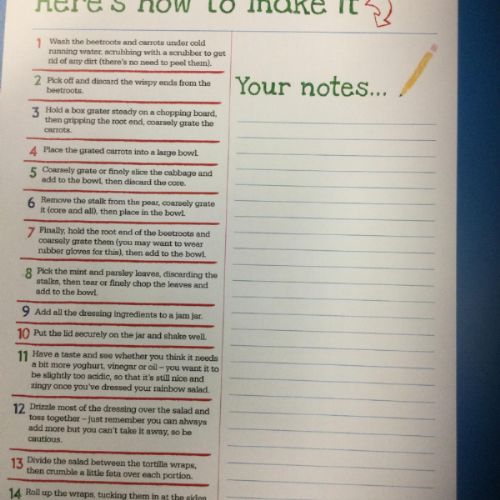 Here's how to make it
1 Wash the beetroots and carrots under cold
running water, scrubbing with a scrubber to get
rid of any dirt (there's no need to peel them).
2 Pick off and discard the wispy ends from the
beetroots.
3 Hold a box grater steady on a chopping board,
then gripping the root end, coarsely grate the
carrots.
4 Place the grated carrots into a large bowl.
5 Coarsely grate or finely slice the cabbage and
add to the bowl, then discard the core.
6 Remove the stalk from the pear, coarsely grate
it (core and all), then place in the bowl.
7 Finally, hold the root end of the beetroots and
coarsely grate them (you may want to wear
rubber gloves for this), then add to the bowl.
8 Pick the mint and parsley leaves, discarding the
stalks, then tear or finely chop the leaves and
add to the bowl.
9 Add all the dressing ingredients to a jam jar.
10 Put the lid securely on the jar and shake well.
11 Have a taste and see whether you think it needs
a bit more yoghurt, vinegar or oil – you want it to
be slightly too acidic, so that it's still nice and
zingy once you've dressed your rainbow salad.
12 Drizzle most of the dressing over the salad and
toss together – just remember you can always
add more but you can't take it away, so be
cautious.
13 Divide the salad between the tortilla wraps,
then crumble a little feta over each portion.
14 Roll up the wraps, tucking them in at the sides
Your notes...